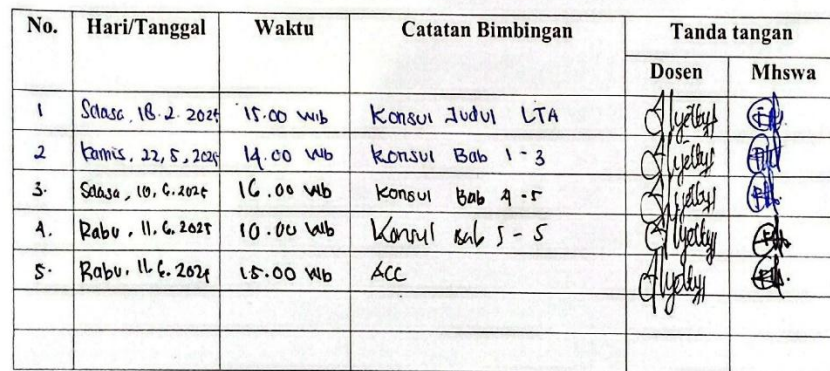 No. Hari/Tanggal Waktu Catatan Bimbingan Tanda tangan
Dosen Mhswa
1 Selasa, 18.2.2025 15.00 WIB Konsul Judul LTA
2 Kamis, 22,5,2025 14.00 WIB Konsul Bab 1-3
3. Selasa, 10.6.2025 16.00 WIB Konsul Bab 4-5
4. Rabu, 11.6.2025 10.00 WIB Konsul Bab 5-5
5. Rabu, 11.6.2025 15.00 WIB ACC